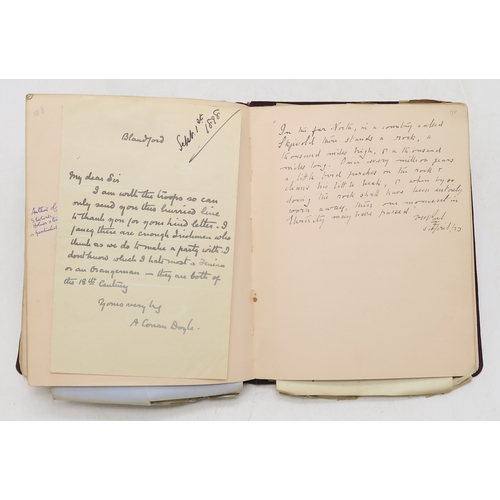 Blandford
Sept. 1st
1898
My dear Sir
I am with the troops so can
only send you this hurried line
to thank you for your kind letter. I
fancy there are enough Irishmen who
think as we do to make a party with. I
don't know which I hate most a Fenian
or an Orangeman — they are both of
the 18th Century
Yours very truly
A Conan Doyle.
In the far North, in a country called
stands a rock, a
thousand miles high, & a thousand
miles long. Once every million years
a little bird perches on the rock &
its little beak, & when by so
doing the rock shall have been entirely
worn away, then one moment in
Eternity may have passed